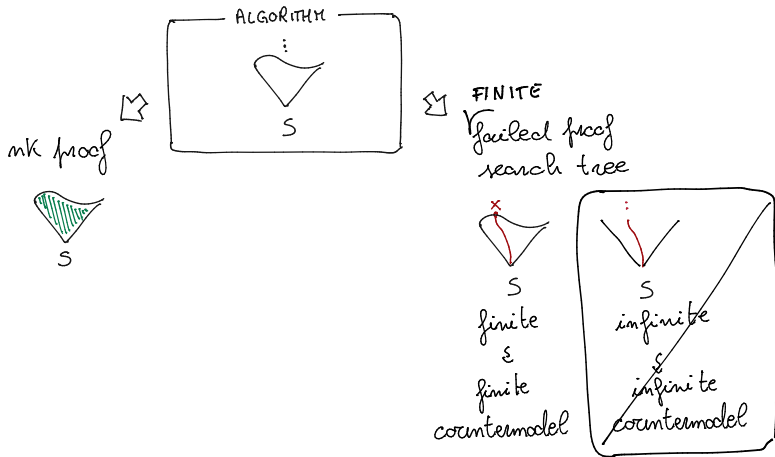 ALGORITHM
⋮
S
nk proof
S
FINITE
failed proof
search tree
x
S
finite
&
finite
countermodel
⋮
S
infinite
&
infinite
countermodel